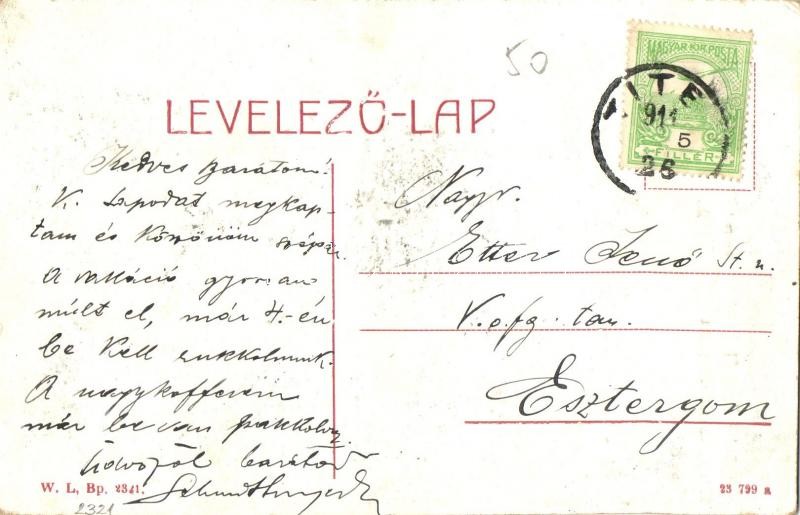 50
MAGYAR KIR. POSTA
911
5
26
FILLÉR
LEVELEZŐ-LAP
Kedves Barátom!
K. Lapodat megkap-
tam és köszönöm szépen
A vakáció gyorsan
múlt el, már 4.-én
be kell rukkolnunk.
A nagykofferem
már be van pakkolva
Üdvözöl barátod
Nagys.
Etter Jenő
V. o. fg. tan.
Esztergom
W. L, Bp. 2341.
2321
23 799